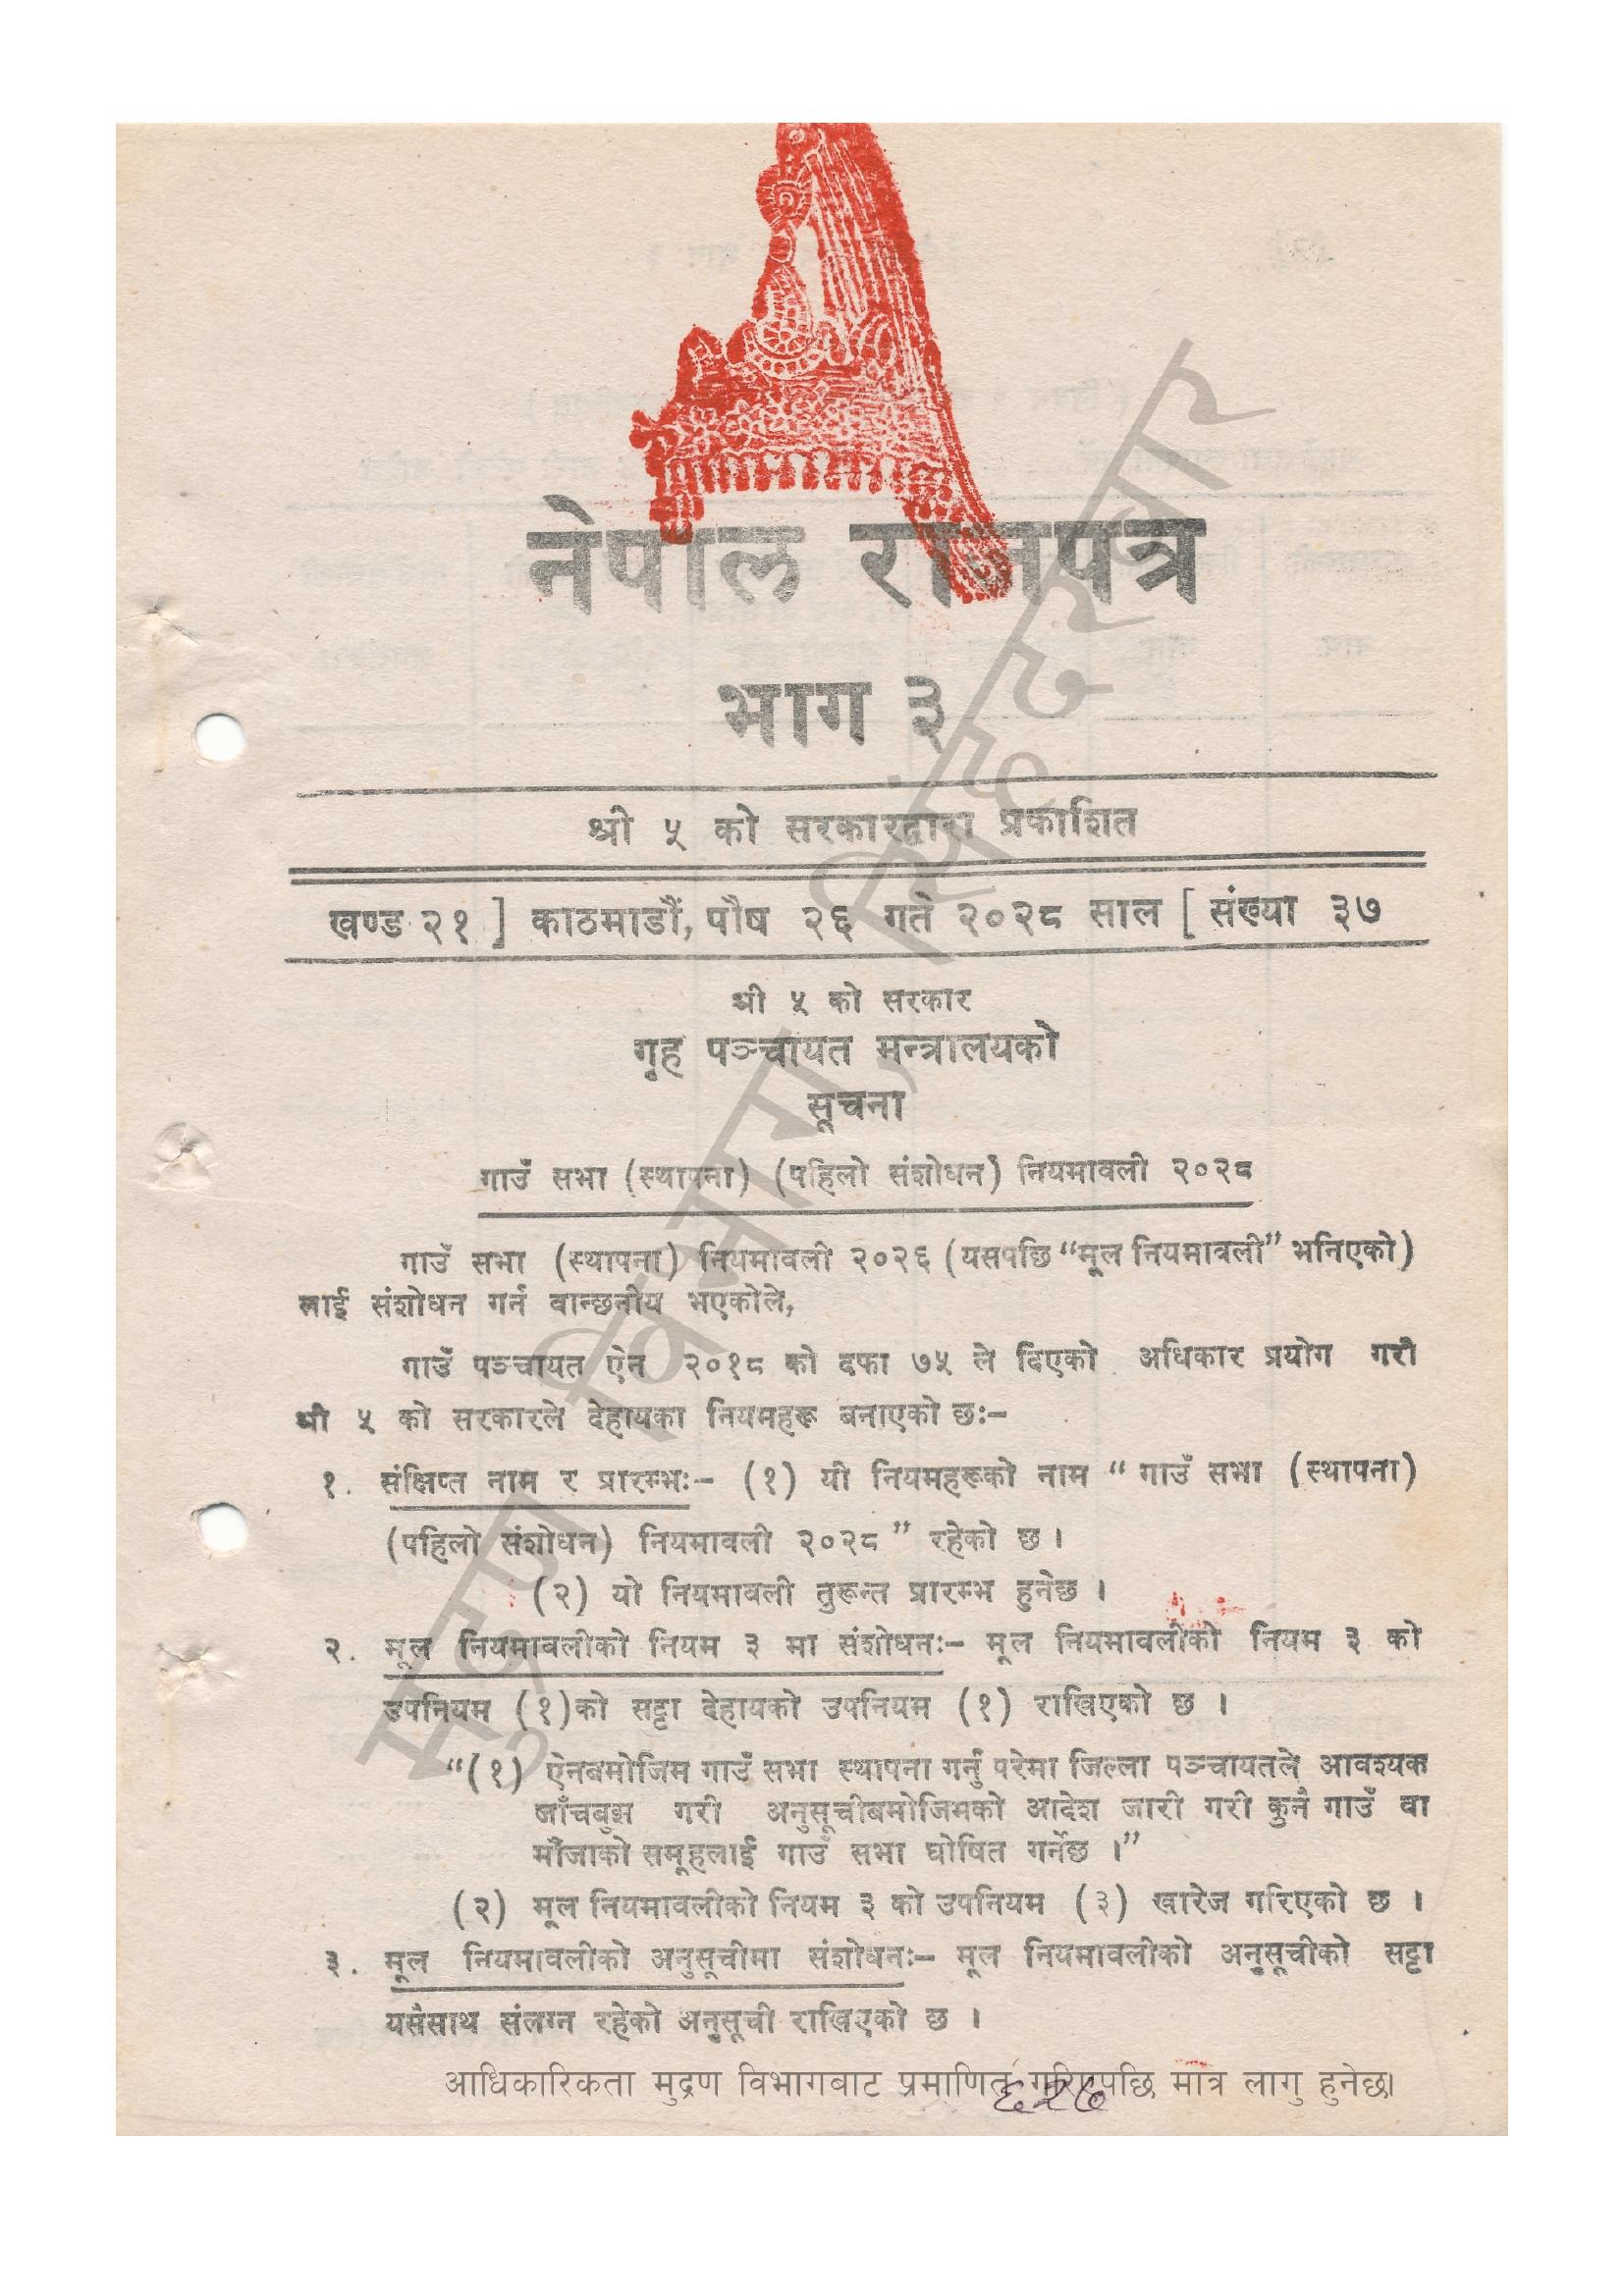 नेपाल राजपत्र
भाग ३
श्री ५ को सरकारद्वारा प्रकाशित
खण्ड २१ ] काठमाडौं, पौष २६ गते २०२८ साल [ संख्या ३७
श्री ५ को सरकार
गृह पञ्चायत मन्त्रालयको
सूचना
गाउँ सभा (स्थापना) (पहिलो संशोधन) नियमावली २०२८
गाउँ सभा (स्थापना) नियमावली २०२६ (यसपछि “मूल नियमावली” भनिएको)
लाई संशोधन गर्न वान्छनीय भएकोले,
गाउँ पञ्चायत ऐन २०१८ को दफा ७५ ले दिएको अधिकार प्रयोग गरी
श्री ५ को सरकारले देहायका नियमहरू बनाएको छः–
१. संक्षिप्त नाम र प्रारम्भः– (१) यी नियमहरूको नाम “ गाउँ सभा (स्थापना)
(पहिलो संशोधन) नियमावली २०२८ ” रहेको छ ।
(२) यो नियमावली तुरून्त प्रारम्भ हुनेछ ।
२. मूल नियमावलीको नियम ३ मा संशोधनः– मूल नियमावलीको नियम ३ को
उपनियम (१)को सट्टा देहायको उपनियम (१) राखिएको छ ।
“(१) ऐनबमोजिम गाउँ सभा स्थापना गर्नुं परेमा जिल्ला पञ्चायतले आवश्यक
जाँचबुझ गरी अनुसूचीबमोजिमको आदेश जारी गरी कुनै गाउँ वा
मौजाको समूहलाई गाउँ सभा घोषित गर्नेछ ।”
(२) मूल नियमावलीको नियम ३ को उपनियम (३) खारेज गरिएको छ ।
३. मूल नियमावलीको अनुसूचीमा संशोधनः– मूल नियमावलीको अनुसूचीको सट्टा
यसैसाथ संलग्न रहेको अनुसूची राखिएको छ ।
आधिकारिकता मुद्रण विभागबाट प्रमाणित गरिएपछि मात्र लागु हुनेछ।
६२७
मुद्रण विभाग, सिंहदरबार